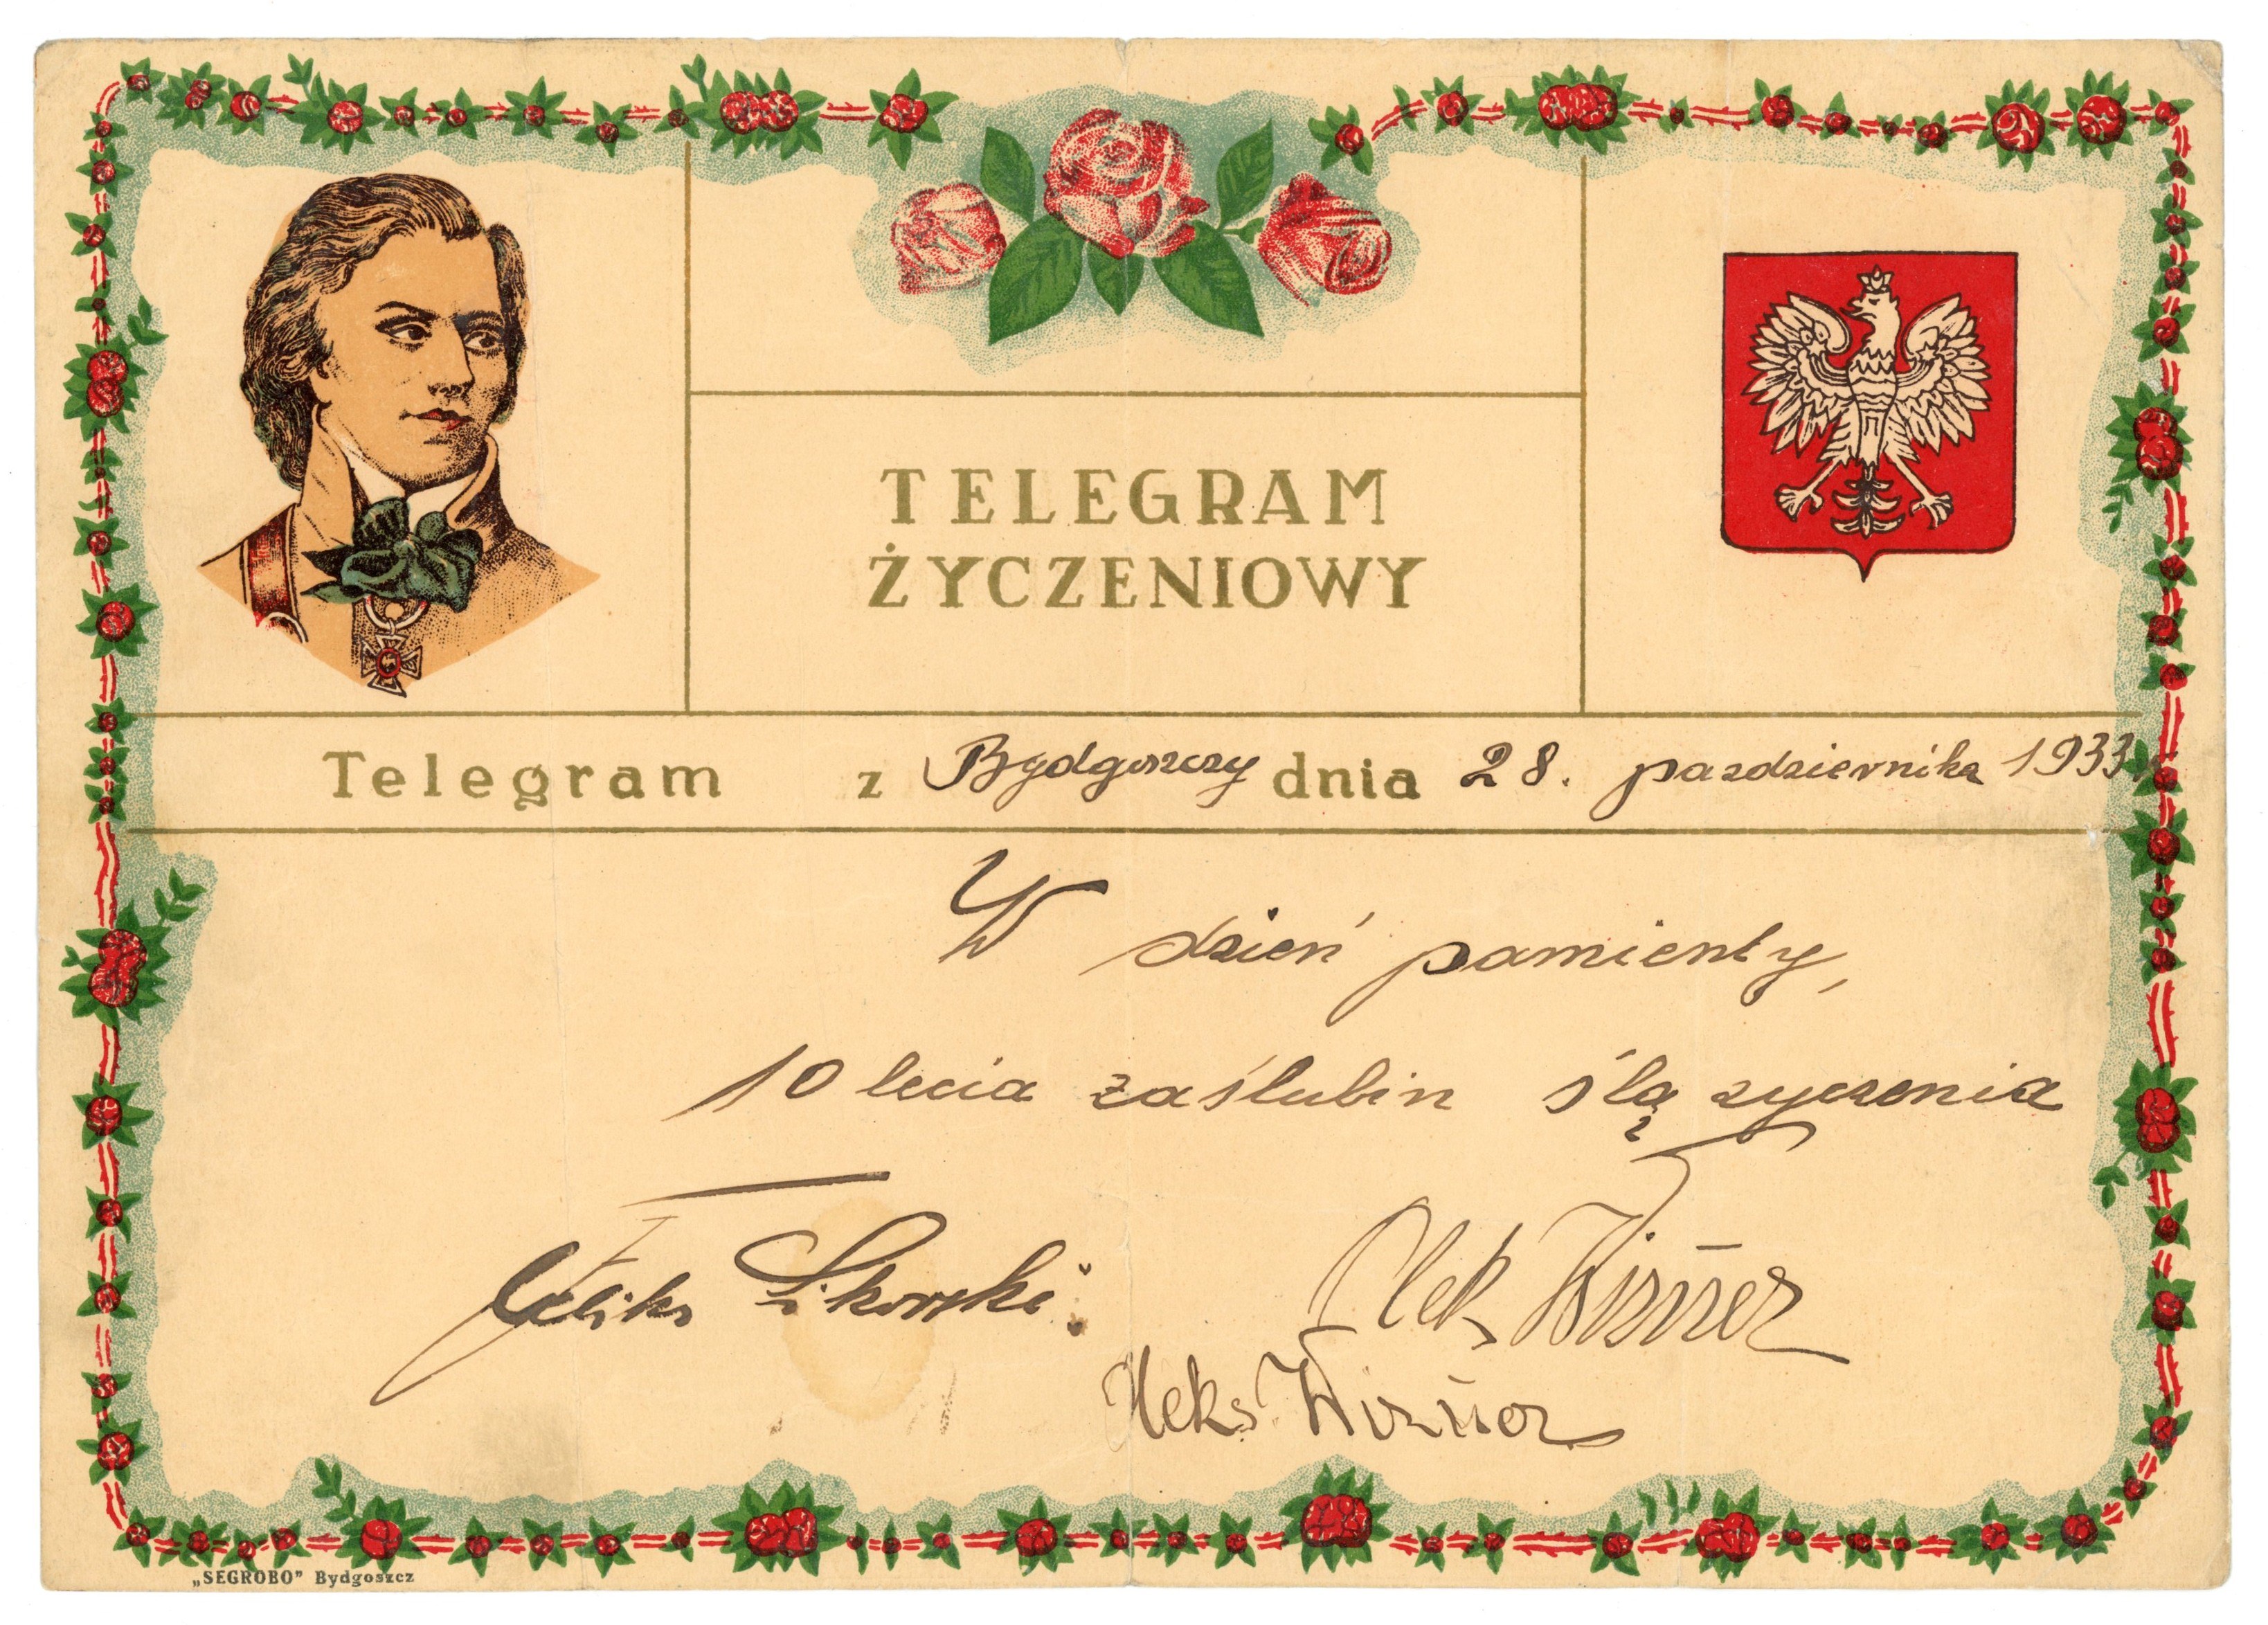 TELEGRAM
ŻYCZENIOWY
Telegram z Bydgoszczy dnia 28. pazdziernika 1933
W dzień pamienty,
10 lecia zaślubin ślą zyczenia
Feliks Sikorski.
Olek
Aleks
„SEGROBO” Bydgoszcz